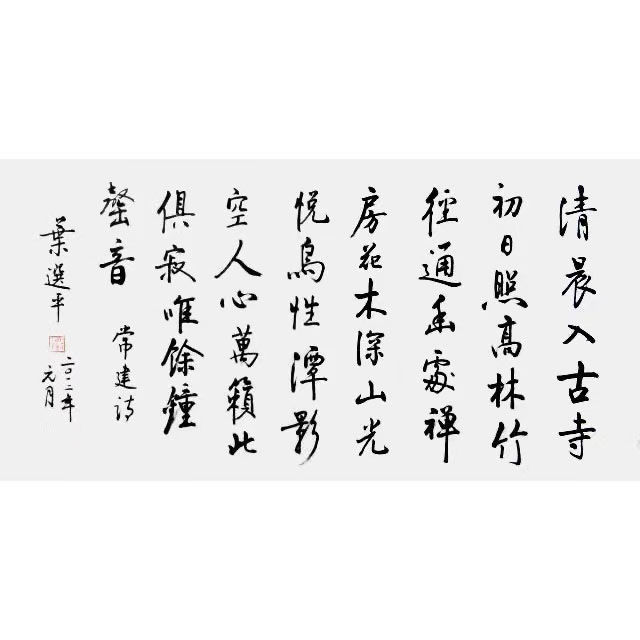 清晨入古寺
初日照高林竹
徑通幽處禅
房花木深山光
悦鳥性潭影
空人心萬籟此
俱寂唯餘鐘
罄音
常建詩
葉選平
二〇一二年
元月